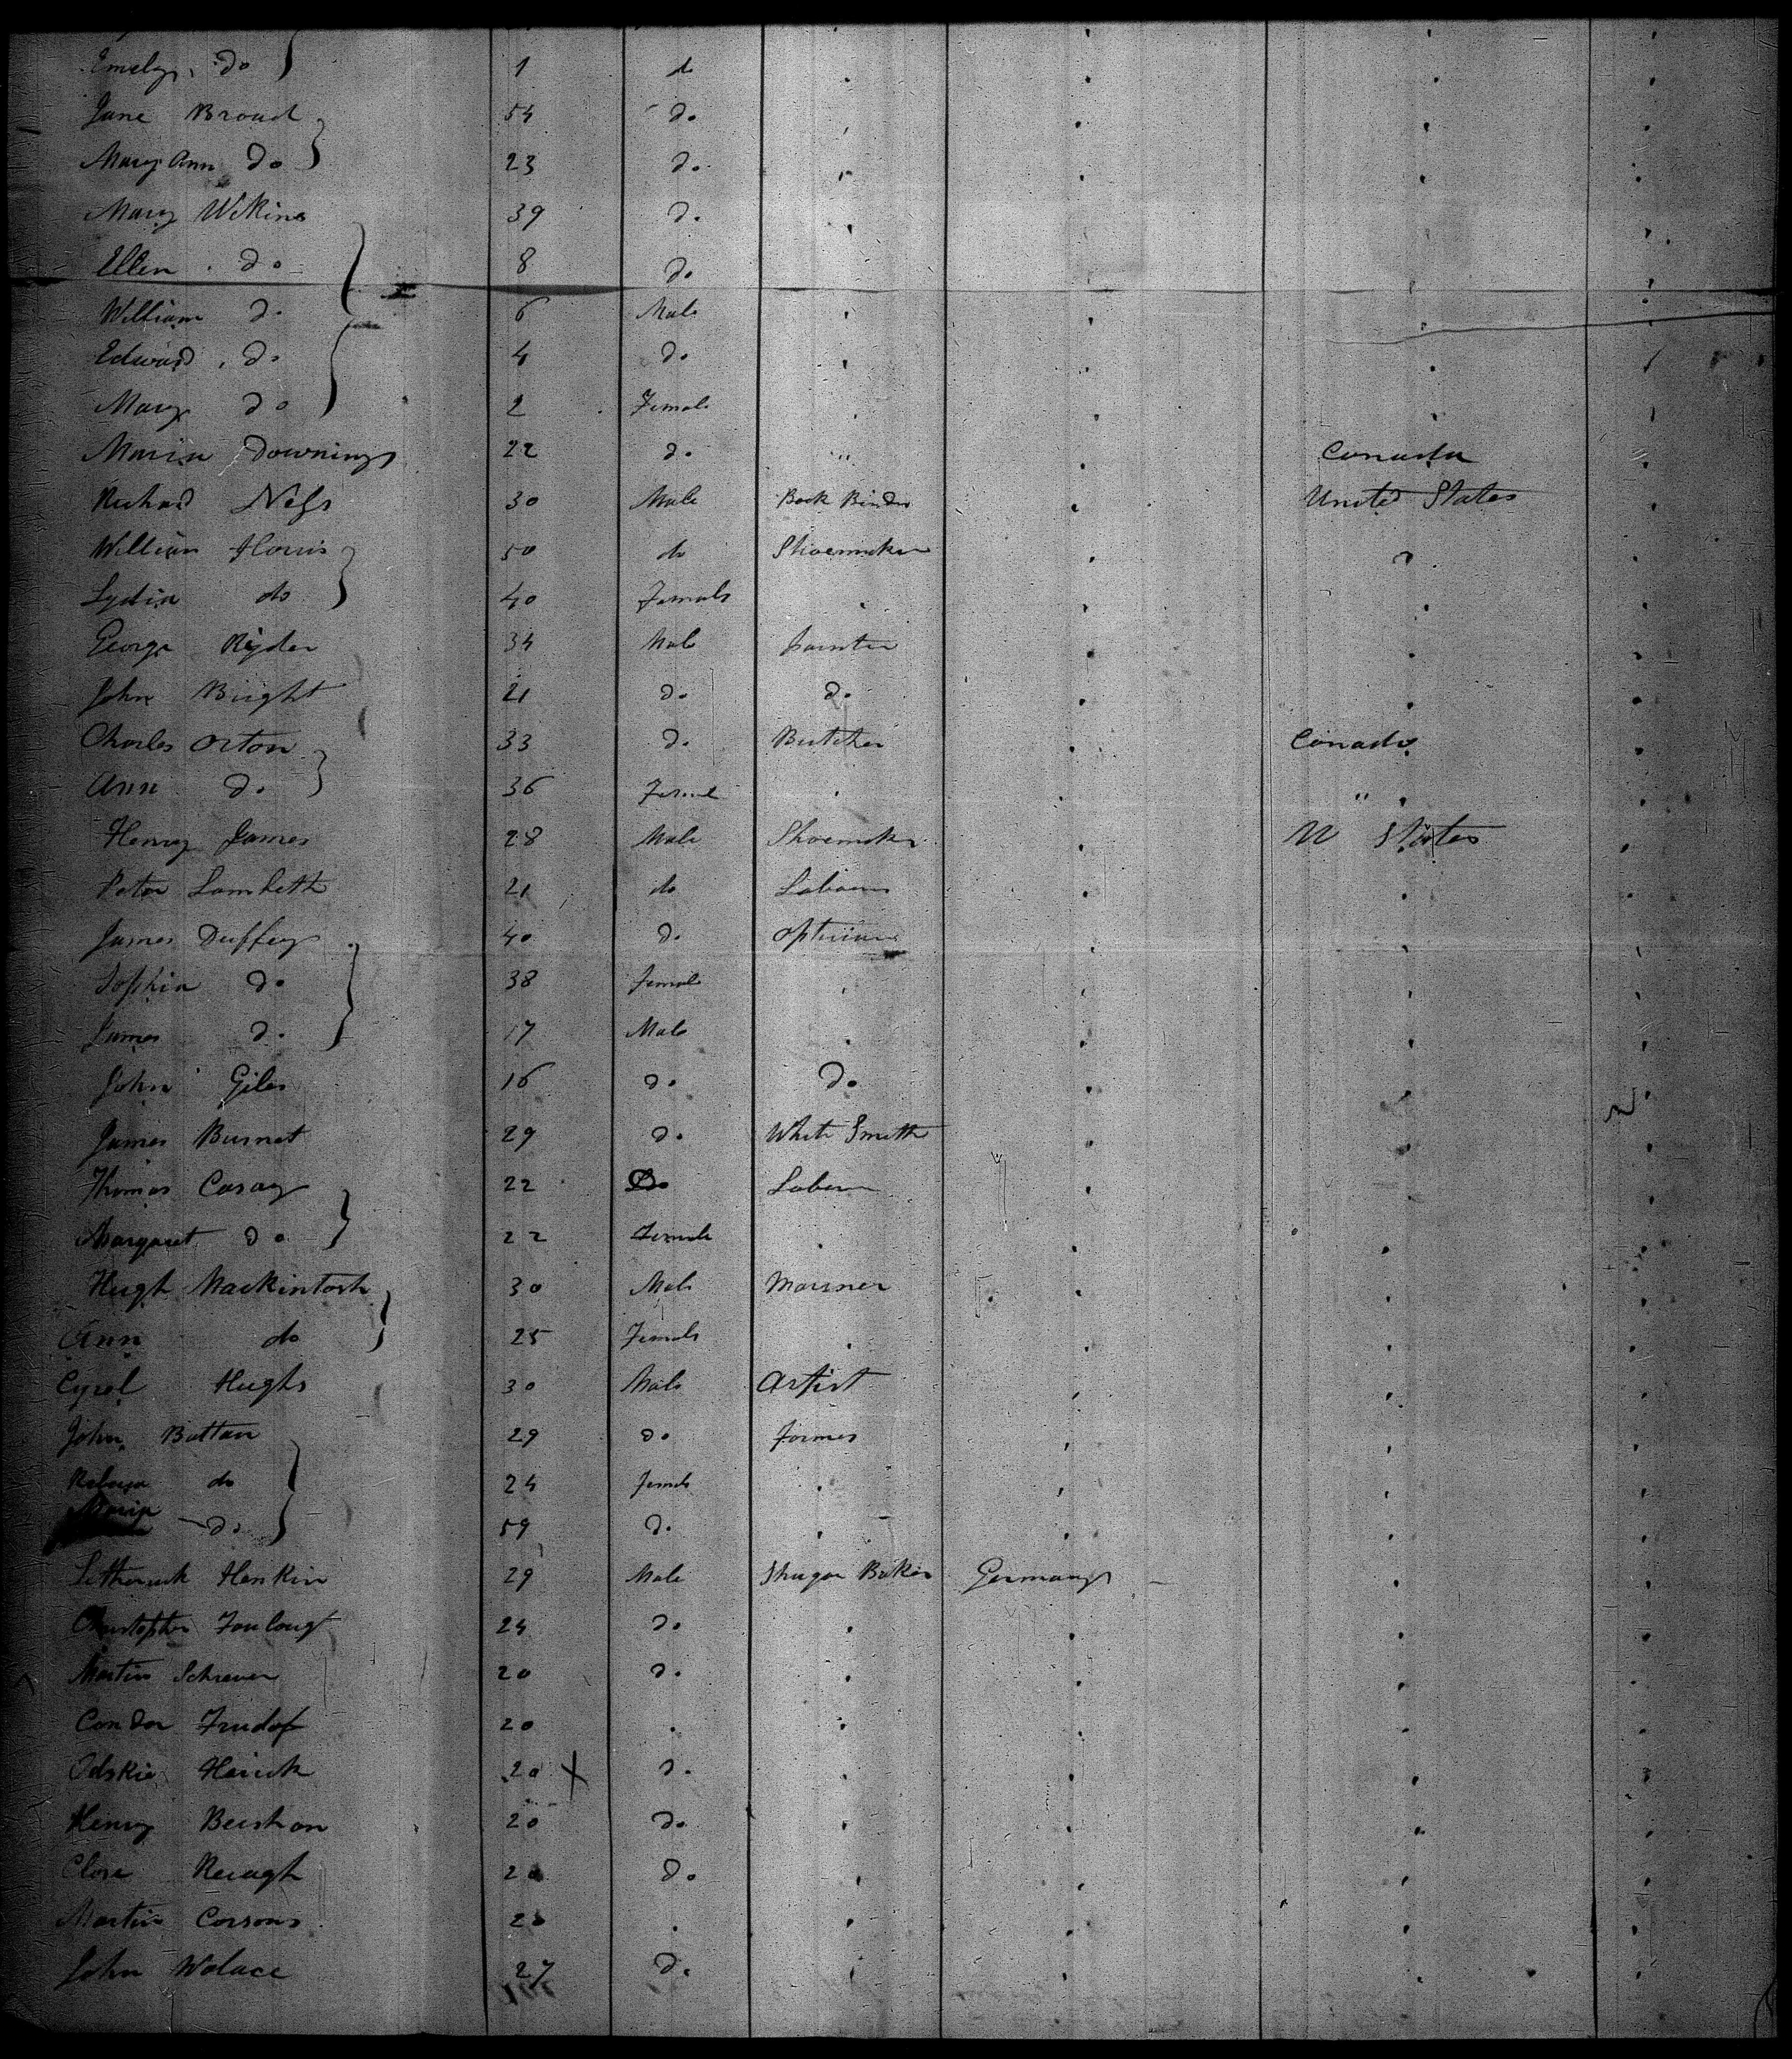 Emely do 1 do
Jane Broad 54 do
Mary Ann do 23 do
Mary Wilkins 39 do
Ellen do 8 do
William do 6 Male
Edward do 4 do
Mary do 2 Female
Maria Downing 22 do " Canada
Richad Ness 30 Male Book Binder United States
William Harris 50 do Shoemaker
Lydia do 40 Female
George Ryder 34 Male Painter
John Bright 21 do do
Charles Orton 33 do Butcher Canada
Ann do 36 Female "
Henry James 28 Male Shoemaker U States
Peter Lambeth 21 do Labourer
James Duffey 40 do optician
Sophia do 38 Female
James do 17 Male
John Giles 16 do do
James Burnet 29 do White Smith
Thomas Casay 22 Do Laberer
Margaret do 22 Female
Hugh Mackintosh 30 Male Mariner
Ann do 25 Female
Cyrel Hughs 30 Male Artist
John Battan 29 do Farmer
do 24 Female
Maria do 59 do
Henkin 29 Male Shugar Baker Germany
Christopher 24 do
Martin Schrever 20 do
20
20 X do
Henry 20 do
20 do
Martin Corsons
John Wolace 27 do